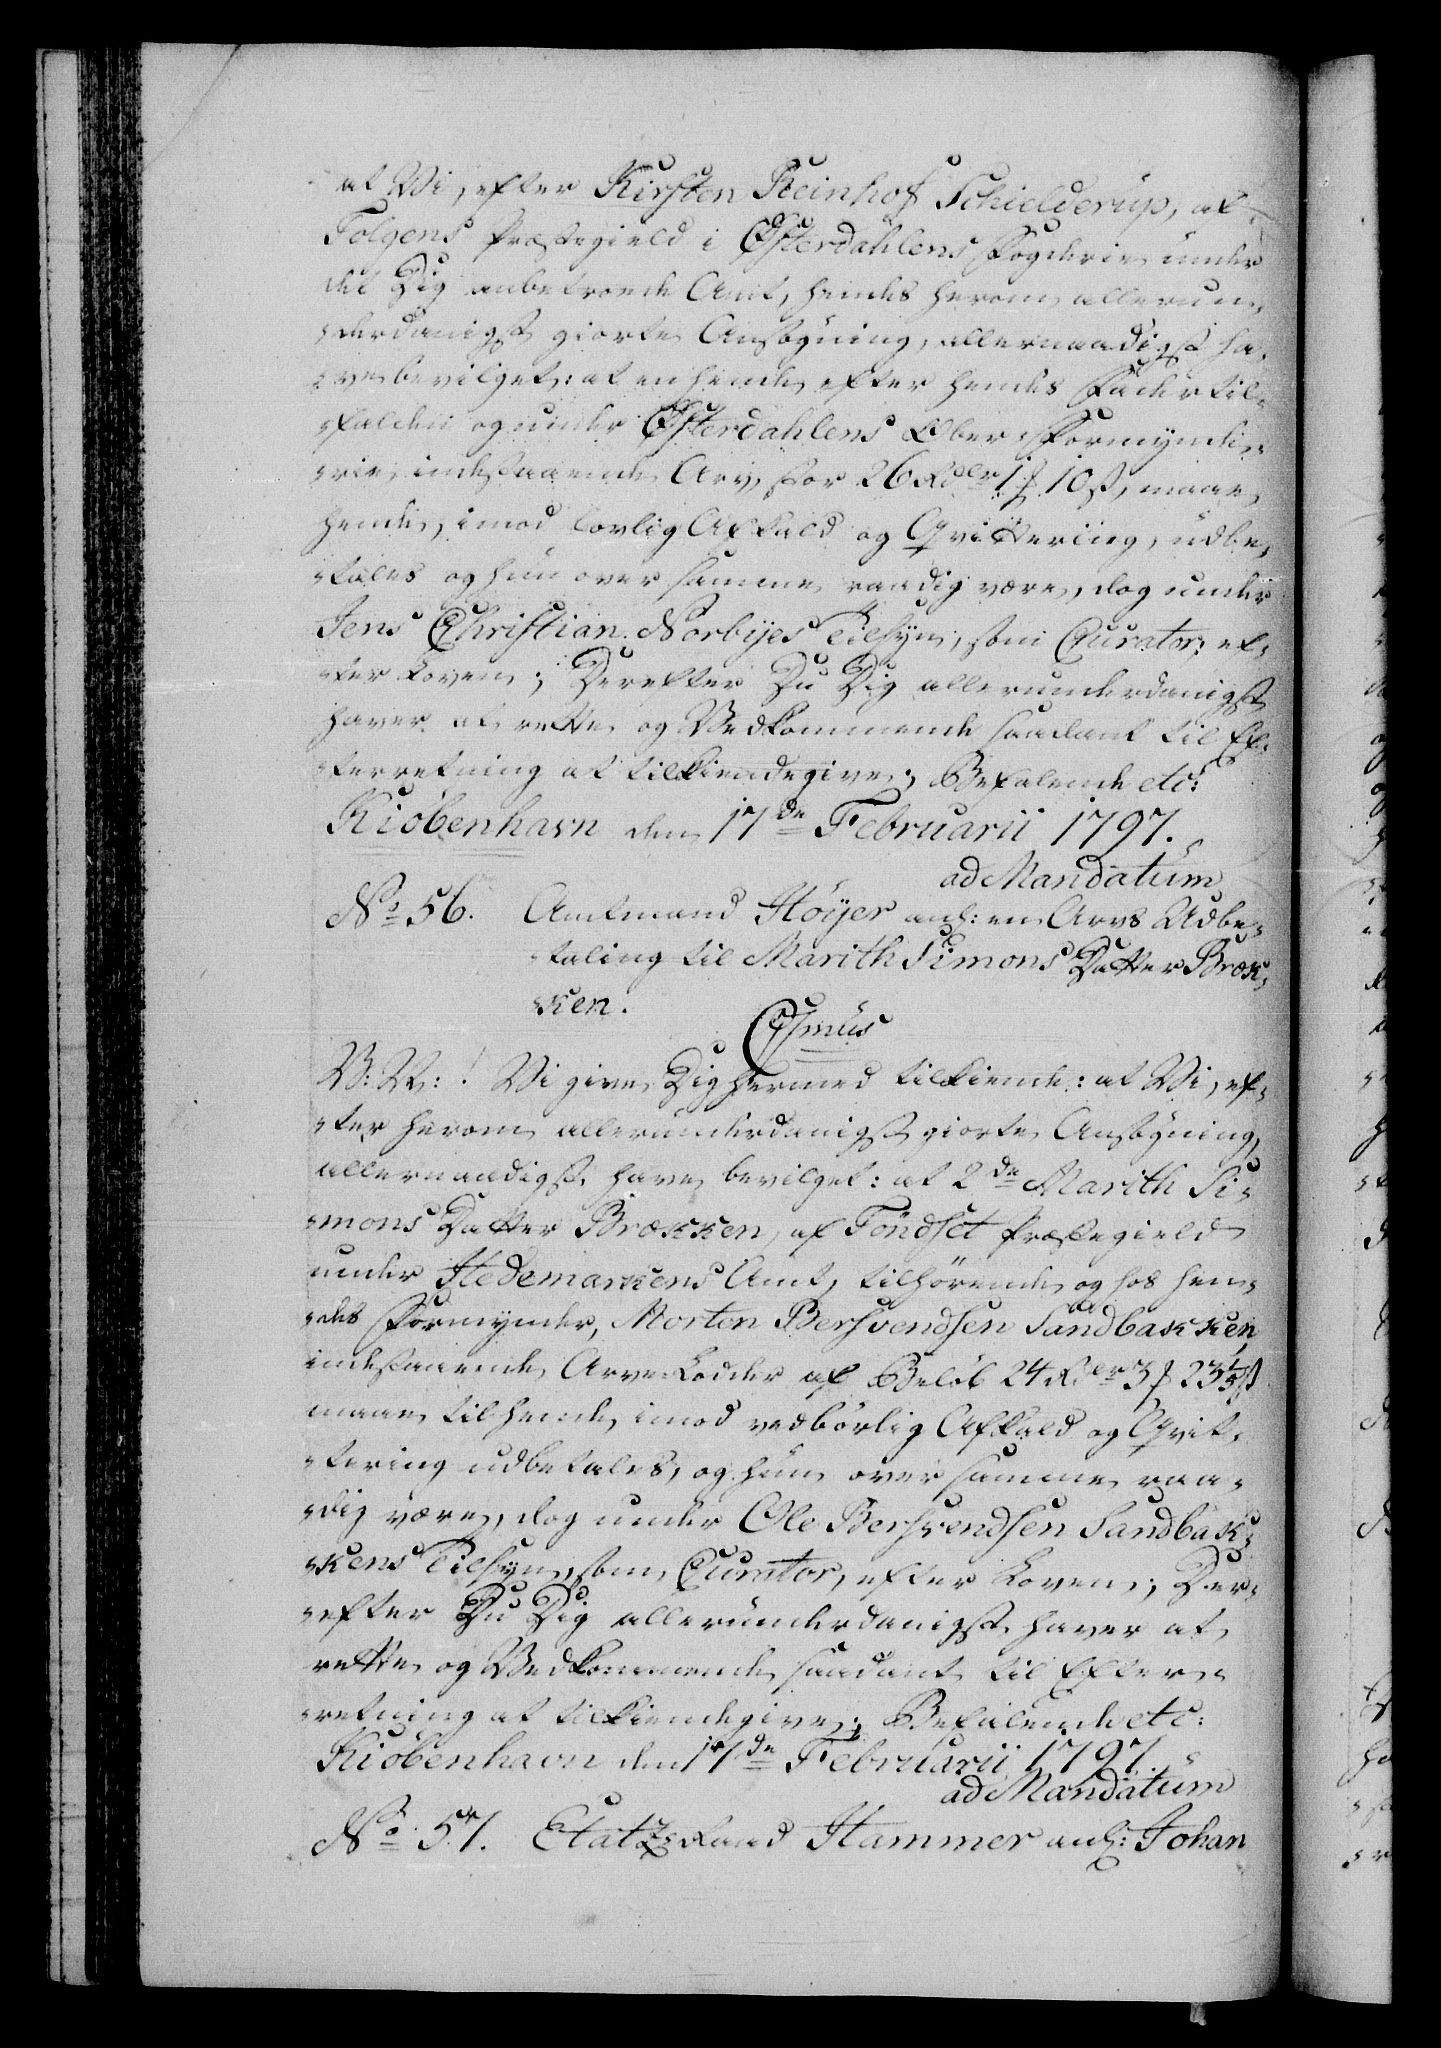 at Vi, efter Kirsten Reinhof Schielderup, af
Tolgens Præstegield i Østerdahlens Fogderie under
det Dig anbetroede Amt, hendes herom allerun-
-derdanigst giorte Ansøgning, allernaadigst ha-
-ve bevilget: at en hende efter hendes Fader til-
-falden og under Østerdahlens Ober-Formynde-
-rie indestaaende Arv, stor 26 Rdlr 1 ƒ 10 ß, maae
hende, imod lovlig Afkald og Qvittering, udbe-
-tales og hun over samme raadig være, dog under
Jens Christian Norbyes Tilsyn, som Curator, ef-
-ter Loven; Derefter Du Dig allerunderdanigst
haver at rette og Vedkommende saadant til Ef-
-terretning at tilkiendegive; Befalende etc:
Kiöbenhavn den 17de Februarii 1797.
ad Mandatum
No 56. Amtmand Höyer anl: en Arvs Udbe-
-taling til Marith Simons Datter Bræk-
-ken.
C7mus
V: V: ! Vi give Dig hermed tilkiende: at Vi, ef-
-ter herom allerunderdanigst giorte Ansøgning,
allernaadigst have bevilget: at 2de Marith Si-
-mons Datter Brækken, af Töndset Præstegield
under Hedemarkens Amt, tilhörende og hos hen-
-des Formynder, Morten Bersvendsen Sandbakken,
indestaaende Arve-Lodder af Belöb 24 Rdlr 3 ƒ 23 1/5 ß
maae til hende imod vedbörlig Afkald og Qvit-
-tering udbetales, og hun over samme raa-
-dig være, dog under Ole Bersvendsen Sandbak-
-kens Tilsyn, som Curator, efter Loven; Der-
-efter Du Dig allerunderdanigst haver at
rette og Vedkommende saadant til Efter-
-retning at tilkiendegive; Befalende etc:
Kiöbenhavn den 17de Februarii 1797.
ad Mandatum
No 57. Etatz-Raad Hammer anl: Johan